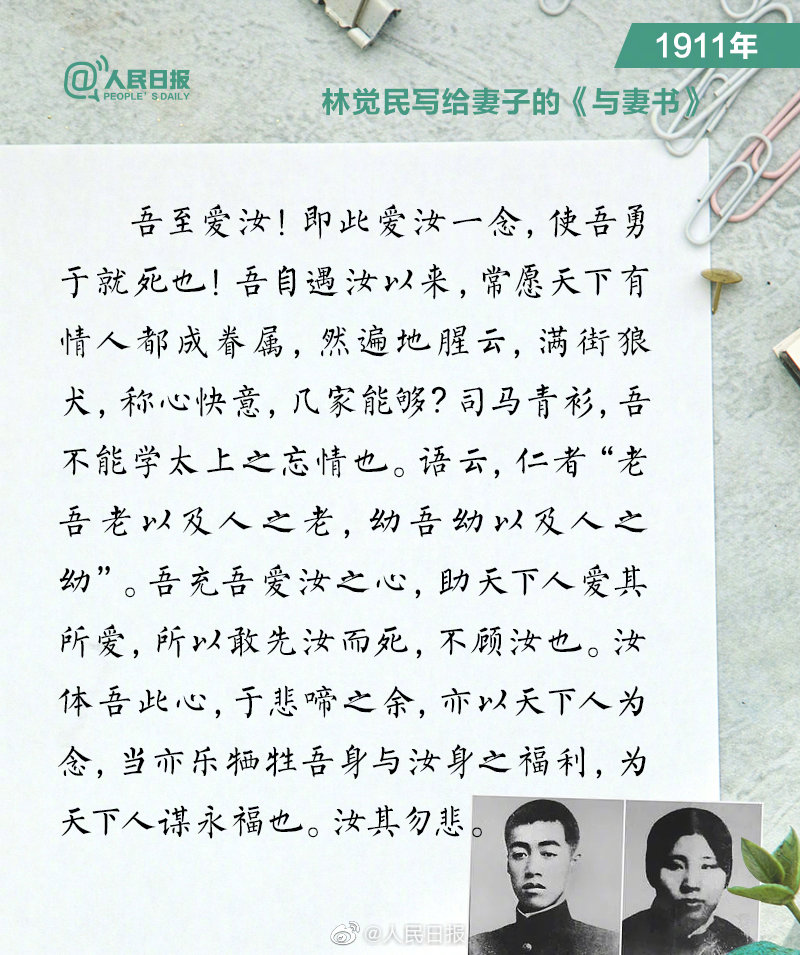 1911年
@人民日报
PEOPLE'S DAILY
林觉民写给妻子的《与妻书》
吾至爱汝！即此爱汝一念，使吾勇
于就死也！吾自遇汝以来，常愿天下有
情人都成眷属，然遍地腥云，满街狼
犬，称心快意，几家能够？司马青衫，吾
不能学太上之忘情也。语云，仁者“老
吾老以及人之老，幼吾幼以及人之
幼”。吾充吾爱汝之心，助天下人爱其
所爱，所以敢先汝而死，不顾汝也。汝
体吾此心，于悲啼之余，亦以天下人为
念，当亦乐牺牲吾身与汝身之福利，为
天下人谋永福也。汝其勿悲。
@人民日报